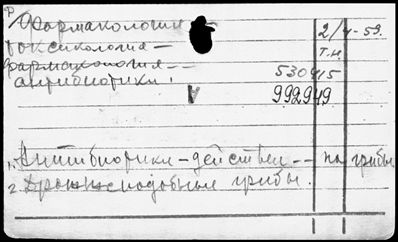 Ф
Фармакология – 2/4-59.
Токсикология – т.н.
фармакология --
антибиотики! 530415
V 992949
1. Антибиотики – действен -- на грибы
2. Дрожжеподобные грибы.